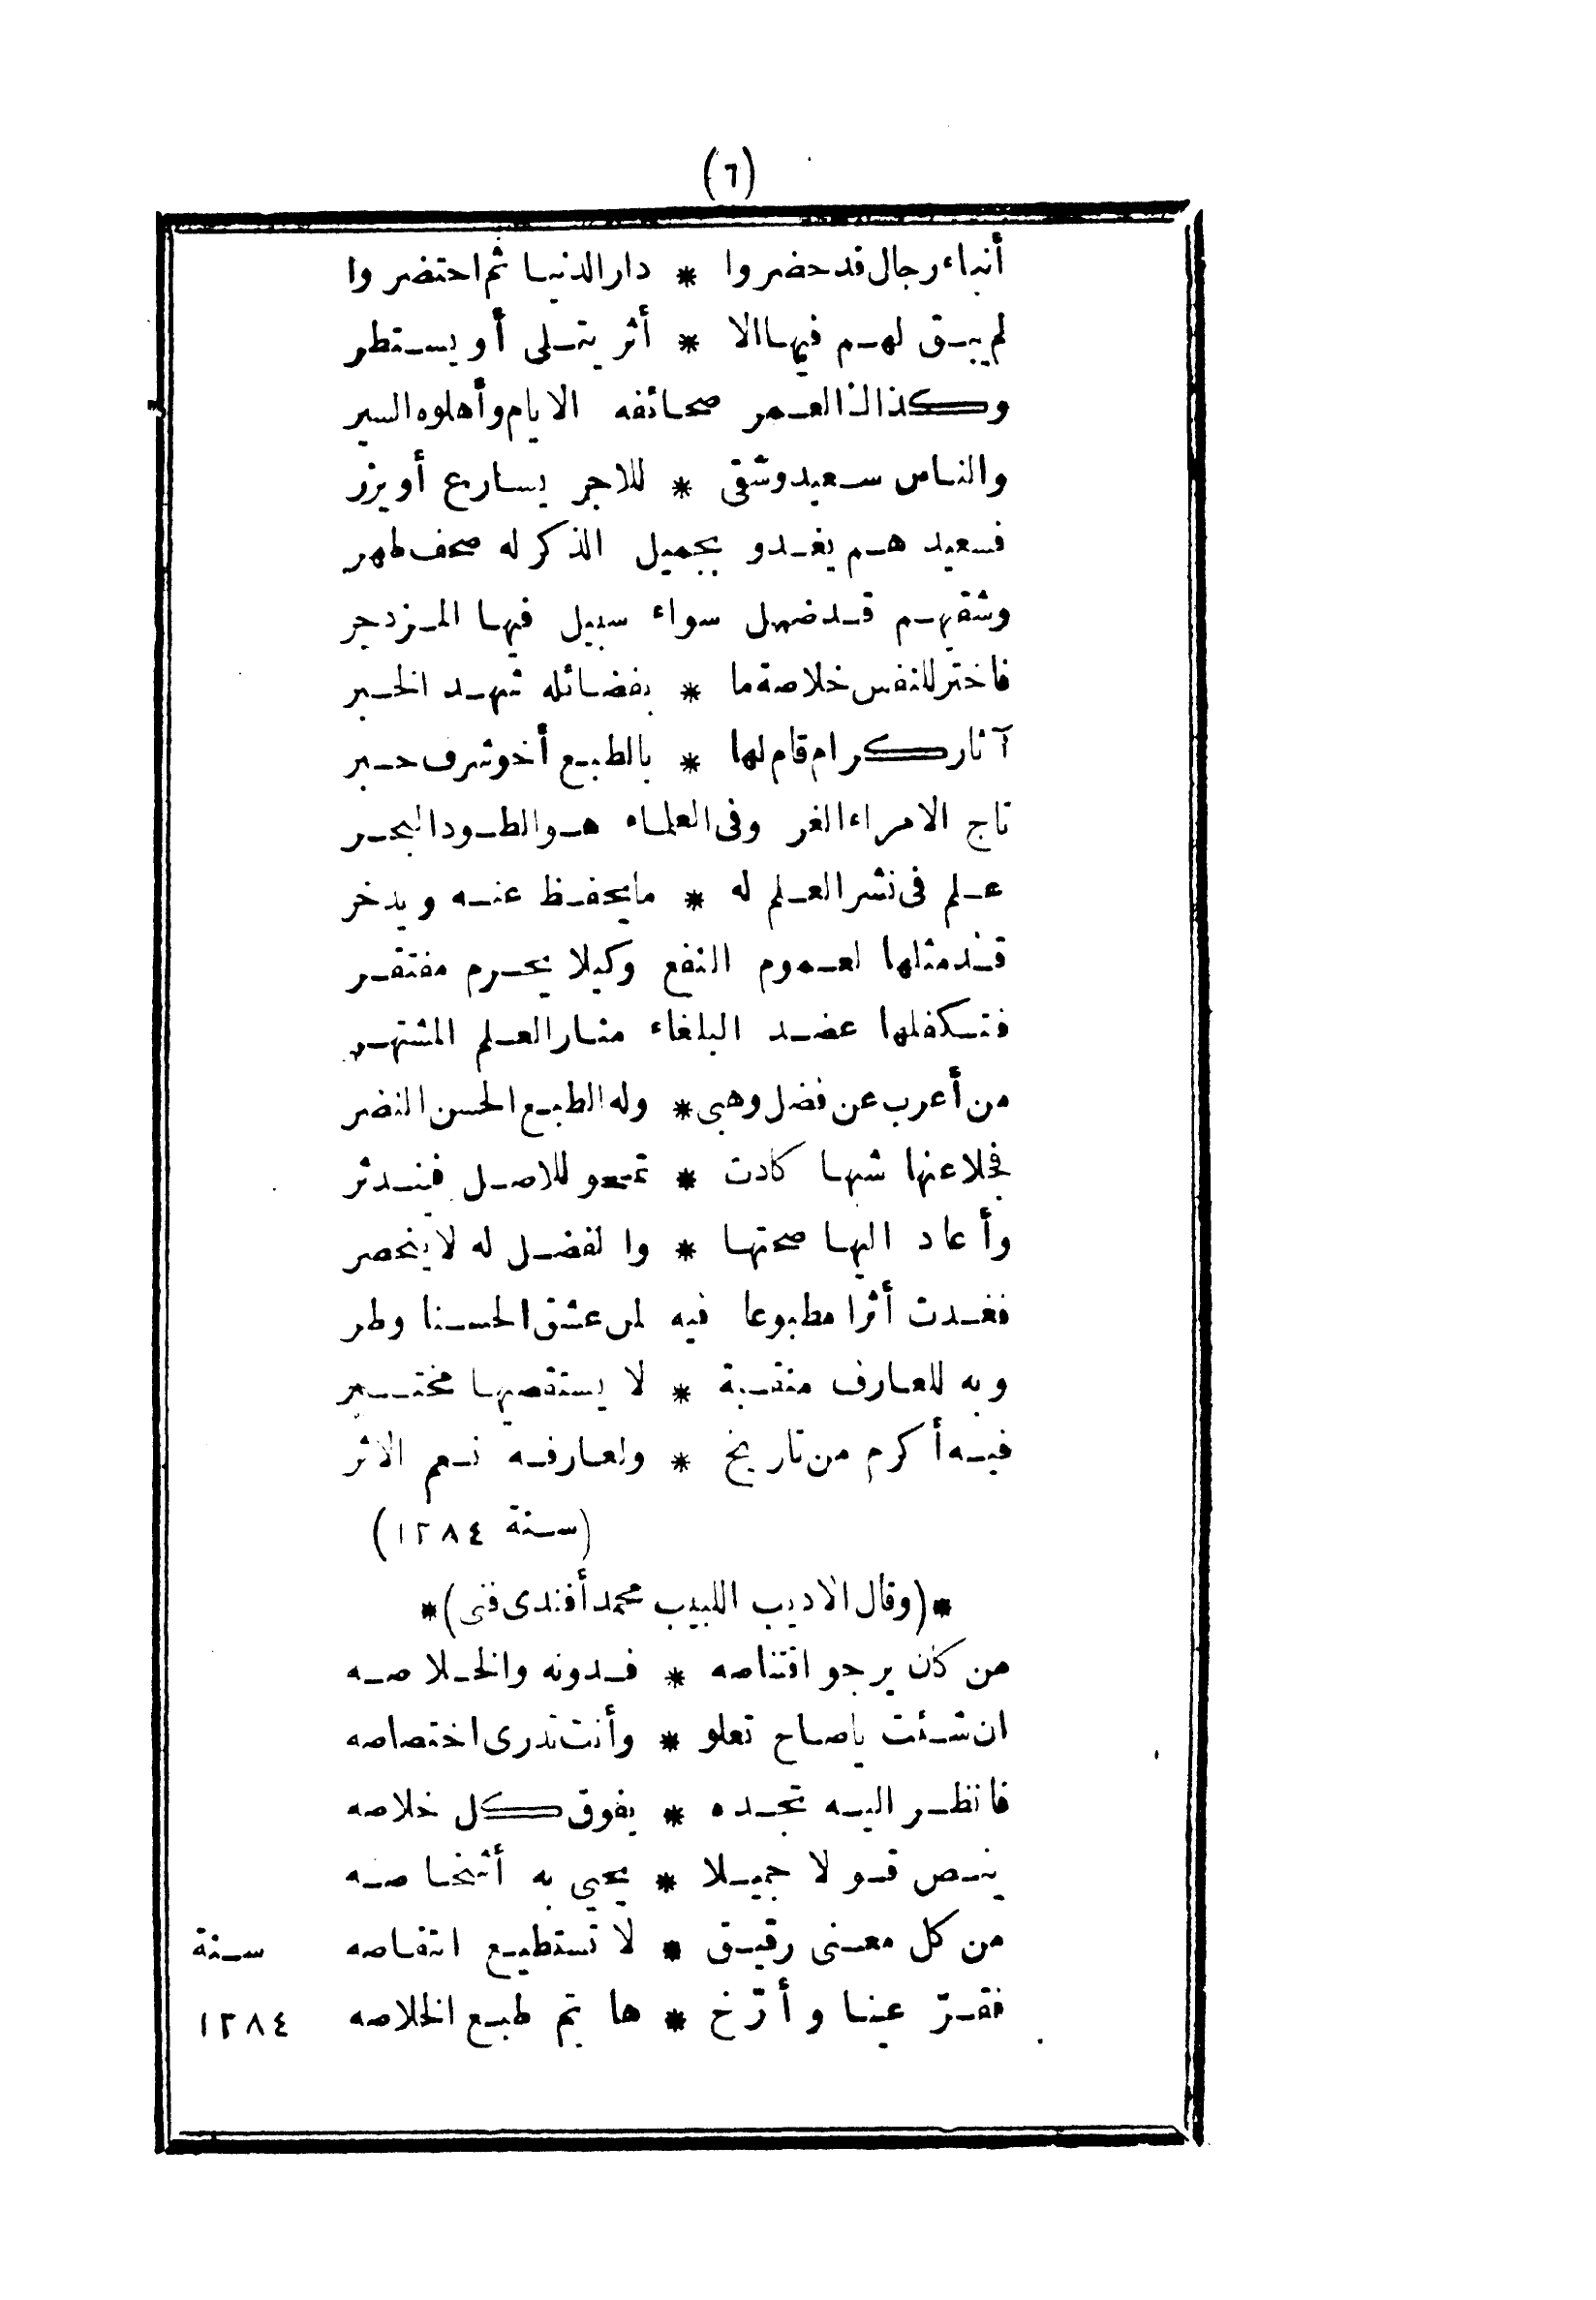 (٦)
أنباء رجال قد حضروا * دار الدنيا ثم احتضروا
لم يبق لهم فيها الا * أثر يتلى أو يستطر
وكذاك العمر صحائفه الايام وأهلوه السير
والناس سعيد وشقى * للاجر يسارع أو يزر
فسعيدهم يغدو بجميل الذكر له صحف طهر
وشقيهم قد ضهل سواء سبيل فيها المزدجر
فاختر للنفس خلاصة ما * بفضائله شهد الخبر
آثار كرام قام لها * بالطبع أخو شرف حبر
تاج الامراء الغر وفى العلماء هو الطود البحر
علم فى نشر العلم له * ما يحفظ عنه ويدخر
قد مثلها لعموم النفع وكيلا يحرم مفتقر
فتكفلها عضد البلغاء منار العلم المشتهر
من أعرب عن فضل وهبى * وله الطبع الحسن النضر
فجلا عنها شبها كادت * تمحو للاصل فيندثر
وأعاد اليها صحتها * والفضل له لا ينحصر
فغدت أثرا مطبوعا فيه لمن عشق الحسنا وطر
وبه للعارف منقبة * لا يستقصيها مختبر
فيه أكرم من تاريخ * ولعارفه نعم الاثر
(سنة ١٢٨٤)
*(وقال الاديب اللبيب محمد أفندى فنى)*
من كان يرجو اقتناصه * فدونه والخلاصه
ان شئت ياصاح تعلو * وأنت تدرى اختصاصه
فانظر اليه تجده * يفوق كل خلاصه
ينص قولا جميلا * يحيي به أشخاصه
من كل معنى رقيق * لا تستطيع انتقاصه سنة
فقرّ عينا وأرّخ * ها تم طبع الخلاصه ١٢٨٤